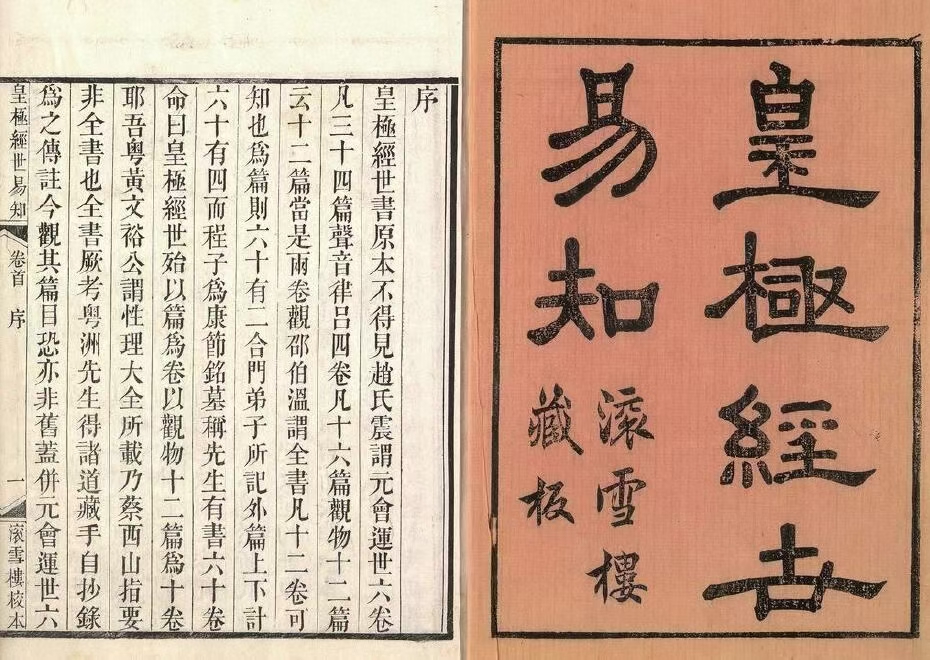 皇極經世
易知
滾雪樓
藏板
序
皇極經世書原本不得見趙氏震謂元會運世六卷
凡三十四篇聲音律呂四卷凡十六篇觀物十二篇
云十二篇當是兩卷觀邵伯溫謂全書凡十二卷可
知也為篇則六十有二合門弟子所記外篇上下計
六十有四而程子為康節銘墓稱先生有書六十卷
命曰皇極經世殆以篇為卷以觀物十二篇為十卷
耶吾粵黃文裕公謂性理大全所載乃蔡西山指要
非全書也全書厥考粵洲先生得諸道藏手自抄錄
為之傳註今觀其篇目恐亦非舊蓋併元會運世六
皇極經世易知
卷首
序
一
滾雪樓校本